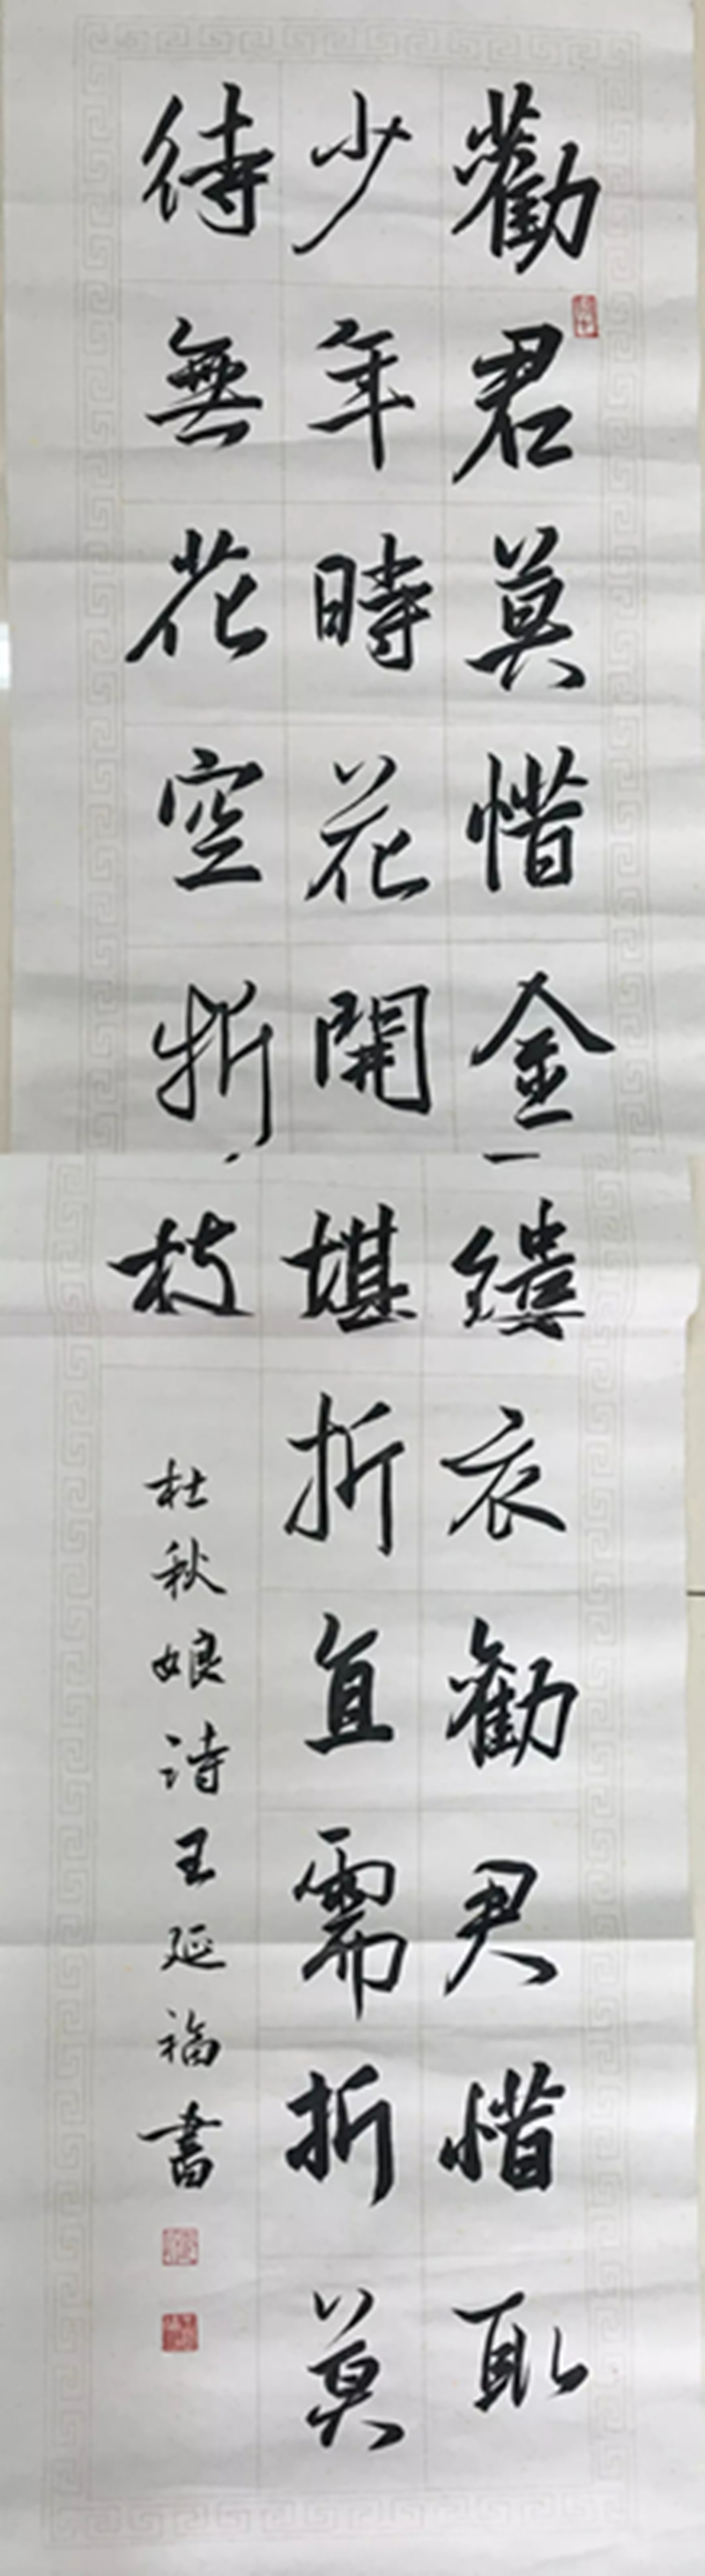 勸君莫惜金縷衣勸君惜取
少年時花開堪折直需折莫
待無花空折枝
杜秋娘诗王延福書